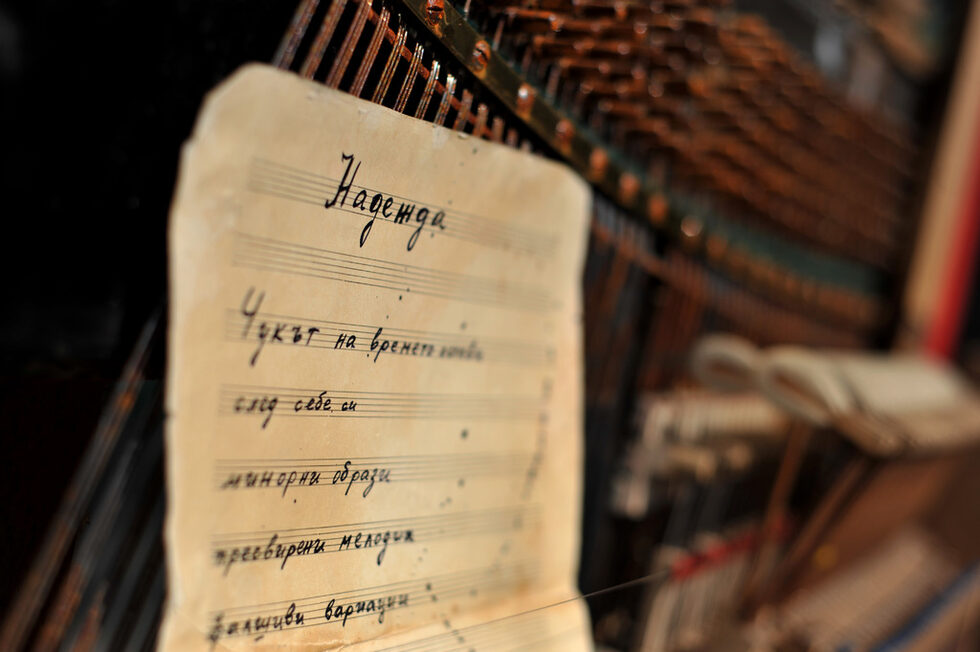 Надежда
Чукът на времето оставя
след себе си
минорни образи
пресвирени мелодии
фалшиви вариации